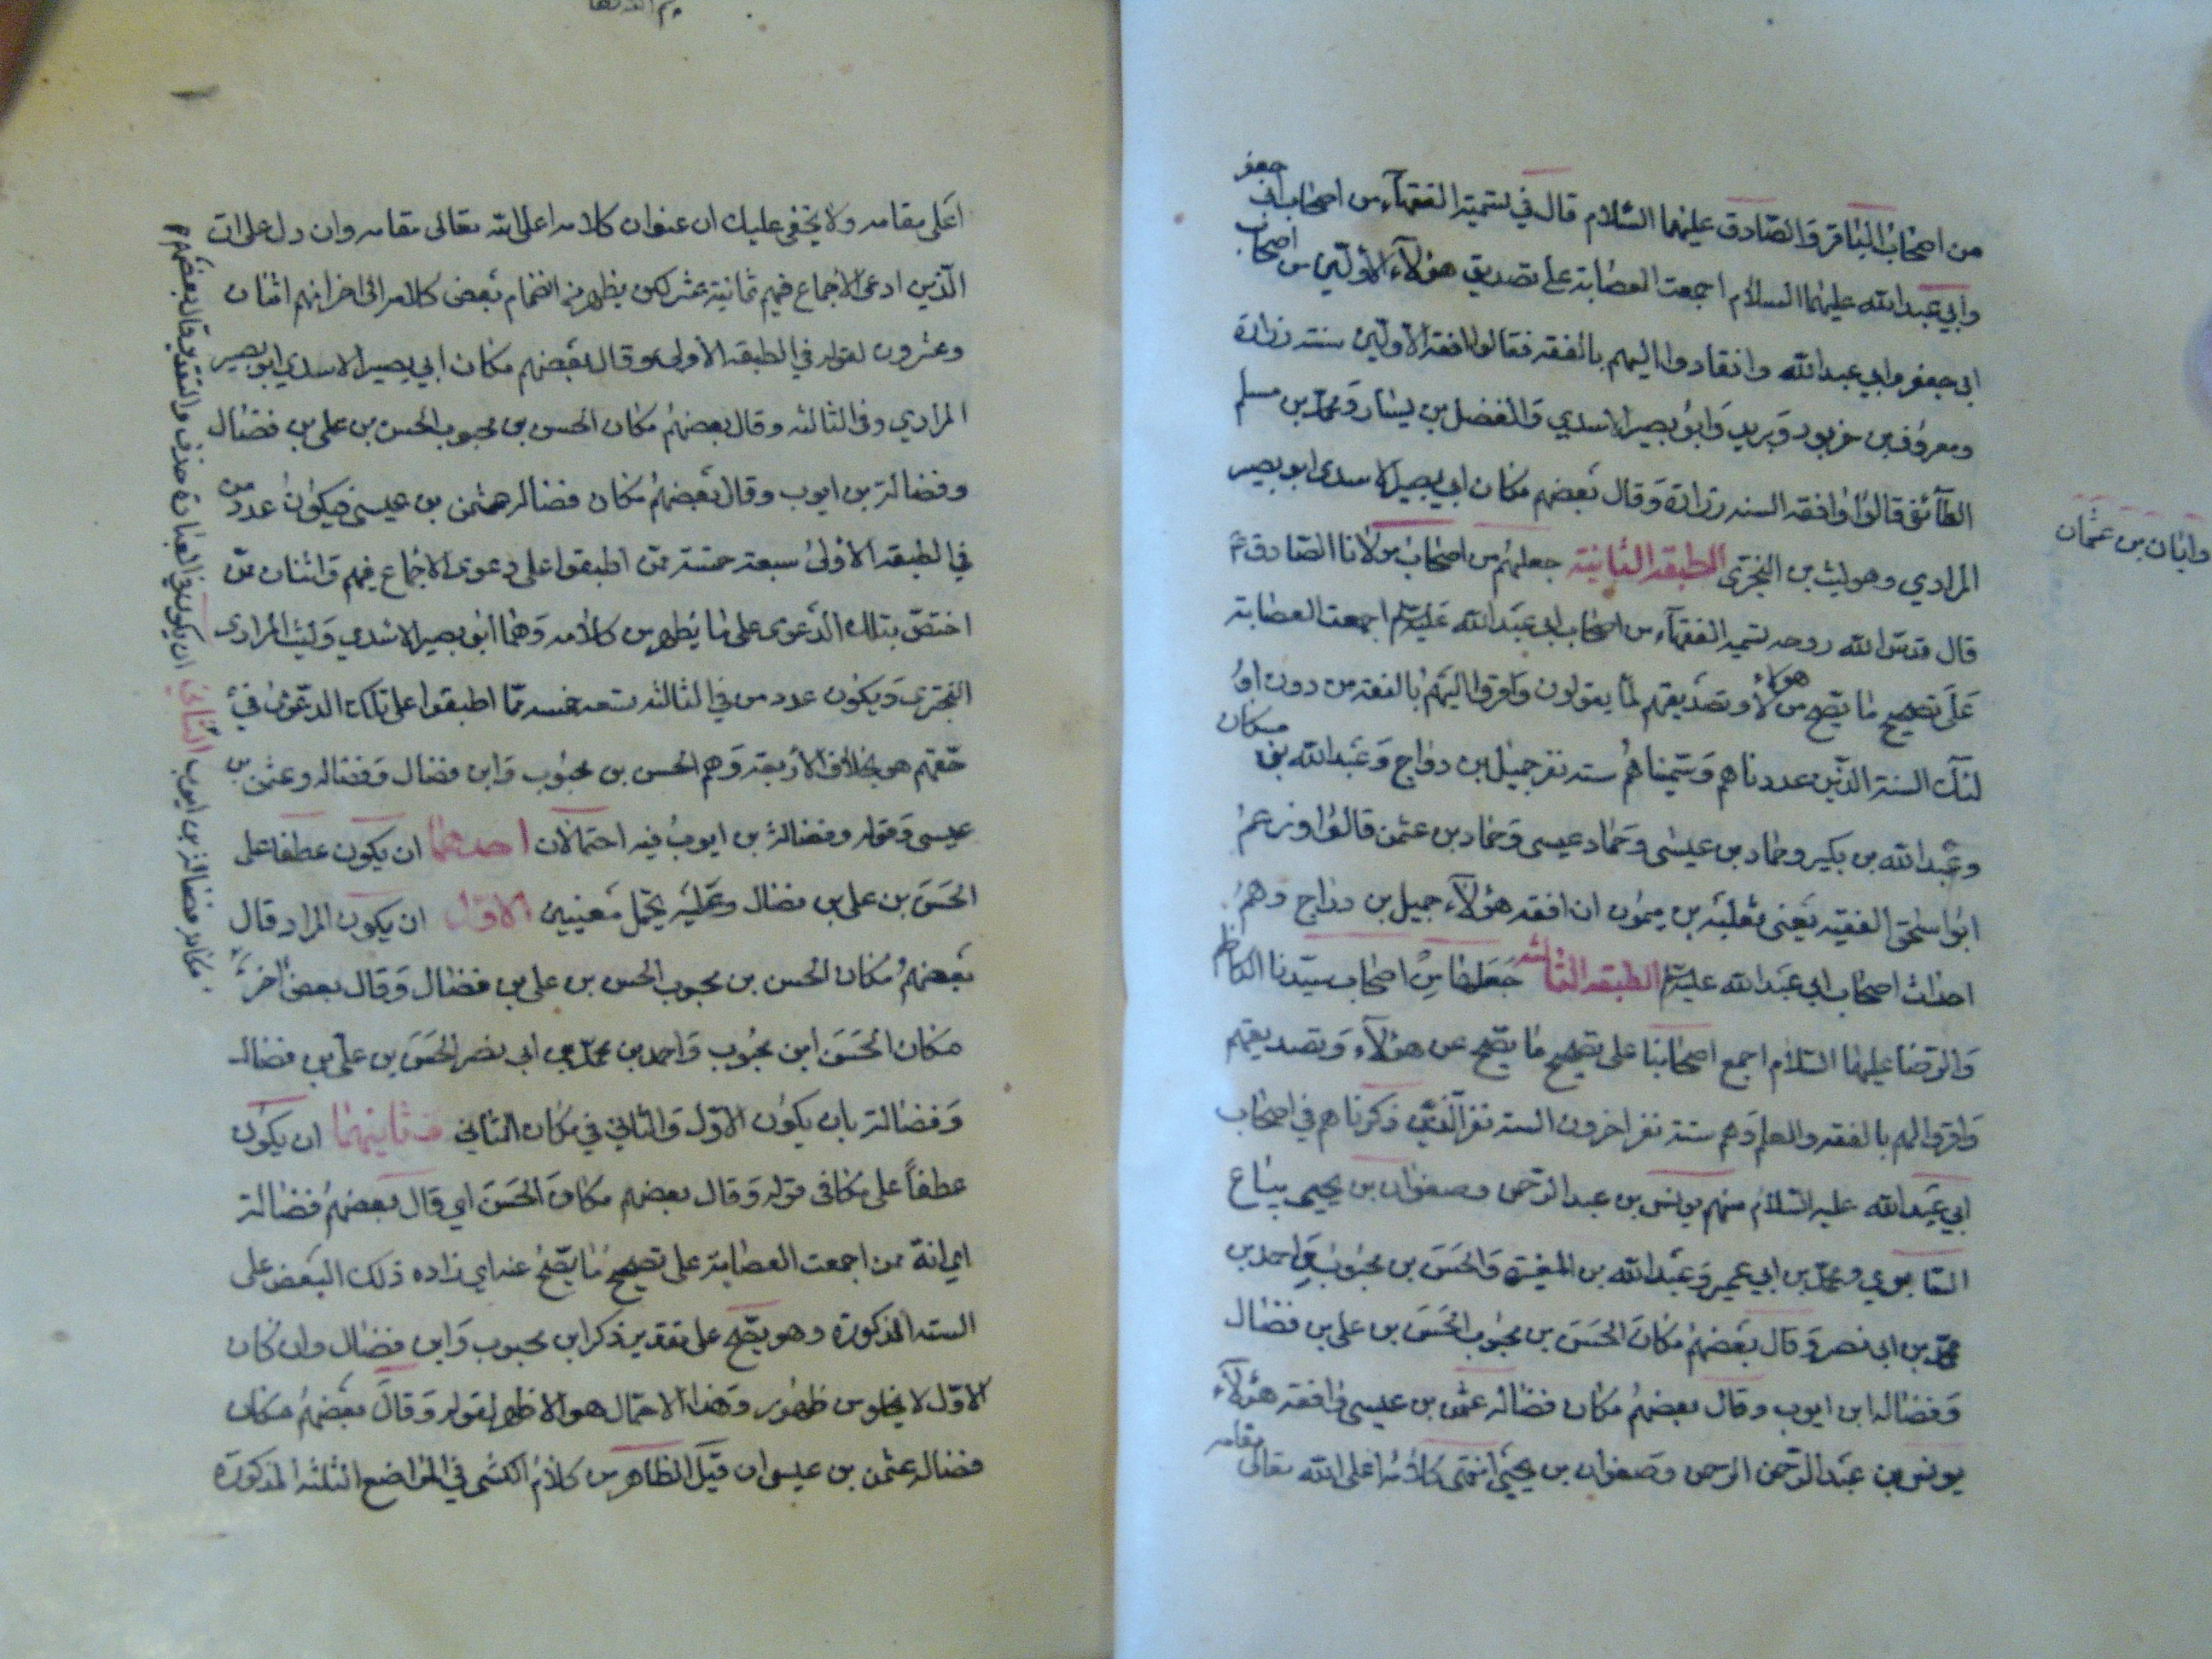 من اصحاب الباقر والصادق عليهما السلام قال في تسمية الفقهآء من اصحاب ابي جعفر
وابي عبد الله عليهما السلام اجمعت العصابة على تصديق هؤلآء الاولين من اصحاب
ابى جعفر وابي عبد الله وانقادوا اليهم بالفقه فقالوا افقه الاولين ستة زرارة
ومعروف بن خربوذ وبريد وابو بصير الاسدي والفضل بن يسار ومحمد بن مسلم
الطآئفى قالوا وافقه الستة زرارة وقال بعضهم مكان ابي بصير الاسدى ابو بصير
المرادي وهو ليث بن البختري الطبقة الثانية جعلهم من اصحاب مولانا الصادق ع
قال قدس الله روحه تسمية الفقهآء من اصحاب ابى عبد الله عليه اجمعت العصابة
على تصحيح ما يصح من هؤلاء وتصديقهم لما يقولون واقروا اليهم بالفقه من دون
لئك الستة الذين عددناهم وسميناهم ستة نفر جميل بن دراج وعبد الله بن مسكان
وعبد الله بن بكير وحماد بن عيسى وحماد عيسى وحماد بن عثمن قالوا وزعم
وابان بن عثمان
ابو اسحق الفقيه يعنى ثعلبة بن ميمون ان افقه هؤلآء جميل بن دراج وهم
احداث اصحاب ابي عبد الله عليه الطبقة الثالثة جعلها من اصحاب سيدنا الكاظم
والرضا عليهما السلام اجمع اصحابنا على تصحيح ما يصح عن هؤلآء وتصديقهم
واقروا لهم بالفقه والعلم وهم ستة نفر اخرون الستة نفر الذين ذكرناهم في اصحاب
ابي عبد الله عليه السلام منهم يونس بن عبد الرحمن وصفوان بن يحيى بياع
السابوي ومحمد بن ابي عمير وعبد الله بن المغيرة والحسن بن محبوب واحمد بن
محمد بن ابى نصر وقال بعضهم مكان الحسن بن محبوب الحسن بن على بن فضال
وفضاله ابن ايوب وقال بعضهم مكان فضاله عثمن بن عيسى وافقه هؤلآء
يونس بن عبد الرحمن الرحمن وصفوان بن يحيى انتهى كلامه اعلى الله تعالى مقامه
اعلى مقامه ولا يخفى عليك ان عنوان كلامه اعلى الله تعالى مقامه وان دل على ان
الذين ادعى الاجماع فيهم ثمانية عشر لكن يظهر من انضمام بعض كلامه الى اخر انهم اثنان
وعشرون لقوله في الطبقة الاولى وقال بعضهم مكان ابي بصير الاسدي ابو بصير
المرادي وفى الثالثه وقال بعضهم مكان الحسن بن محبوب الحسن بن على بن فضال
وفضالة بن ايوب وقال بعضهم مكان فضاله عثمن بن عيسى فيكون عدد من
في الطبقة الاولى سبعة خمسة ممن اطبقوا على دعوى الاجماع فيهم واثنان ممن
اختص بتلك الدعوى على ما يظهر من كلامه وهما ابو بصير الاسدي وليث المرادى
البختري ويكون عدد من في الثالثه تسعه خمسه مما اطبقوا على تلك الدعوى في
حقهم هو بخلاف الاربعة وهم الحسن بن محبوب وابن فضال وفضاله وعثمن بن
عيسى وقوله وفضالة بن ايوب فيه احتمالان احدهما ان يكون عطفا على
الحسن بن على بن فضال وعليه يحتمل معنيين الاول ان يكون المراد قال
بعضهم مكان الحسن بن محبوب الحسن بن على بن فضال وقال بعض اخر
مكان الحسن ابن محبوب واحمد بن محمد بن ابى نصر الحسن بن على بن فضال
وفضالة بان يكون الاول والثاني في مكان الثاني وثانيهما ان يكون
عطفاً على مكان فى قوله وقال بعضهم مكان الحسن اي قال بعضهم فضالة
اي انه ممن اجمعت العصابة على تصحيح ما يصح عنه اي زاده ذلك البعض على
الستة المذكورة وهو يصح على تقدير ذكر ابن محبوب وابن فضال وان كان
الاول لا يخلو من ظهور وهذا الاحتمال هو الاظهر لقوله وقال بعضهم مكان
فضاله عثمن بن عيسى ان قيل الظاهر من كلام الكشى في المواضع الثلثه المذكورة
الثاني ان يكون في العبارة حذف والتقدير قال بعضهم
مكانه فضالة بن ايوب